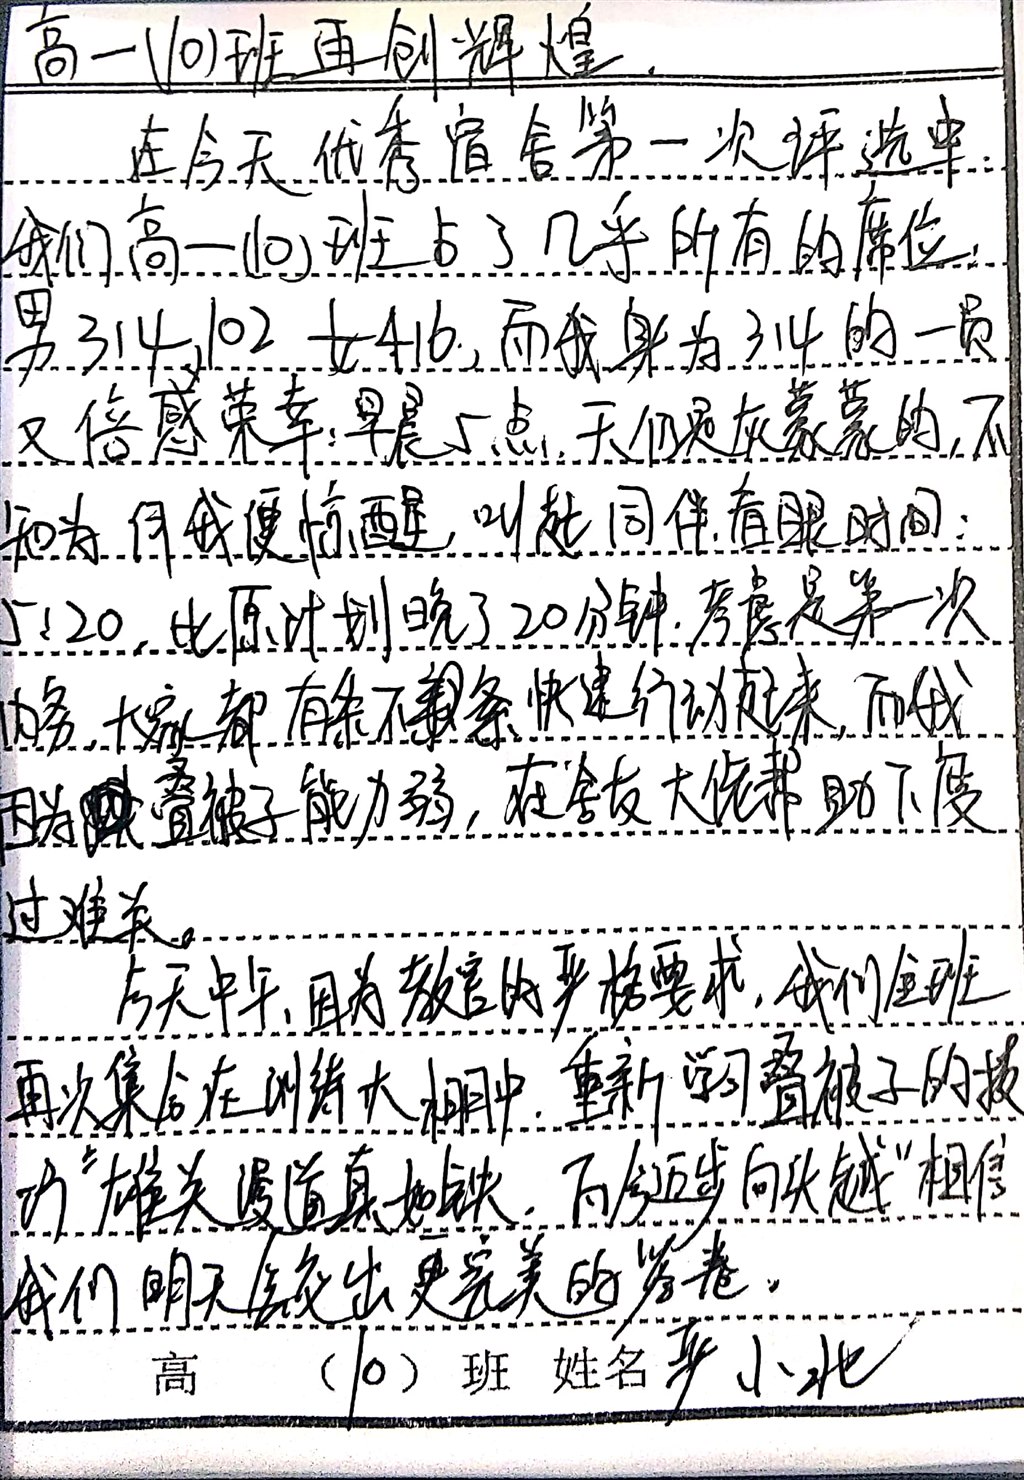 高一(10)班再创辉煌.
在今天优秀宿舍第一次评选中.
我们高一(10)班占了几乎所有的席位.
男314,102 女416.,而我身为314的一员
又倍感荣幸:早晨5点.天仍是灰蒙蒙的,不
知为何我便惊醒,叫起同伴.看眼时间:
5:20,比原计划晚了20分钟.考虑是第一次
内务,大家都有条不紊条快速行动起来,而我
因为叠被子能力弱,在舍友大佬帮助下度
过难关。
今天中午,因为教官的严格要求,我们全班
再次集合在训练大棚中.重新学习叠被子的技
巧"雄关漫道真如铁.而今迈步向头越"相信
我们明天会交出更完美的答卷.
高 (10) 班 姓名 严小北